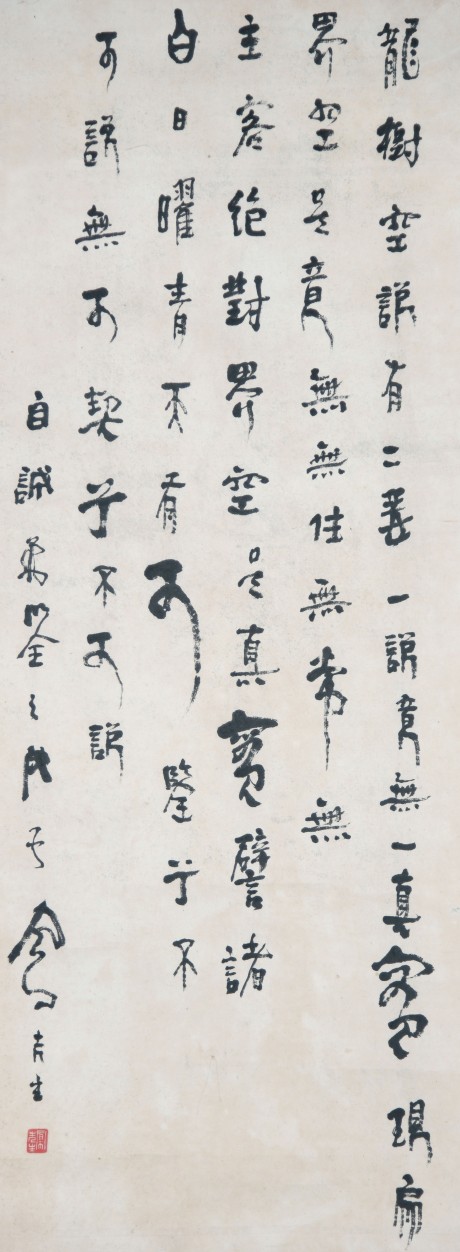 龍樹空說有二義一說竟無一真實現象
界空是竟無無住無常無
主客絕對界空是真實譬諸
白日曜青天有可鑒乎不
可說無可契乎不可說
自誠弟鑒之戊子鳳先生